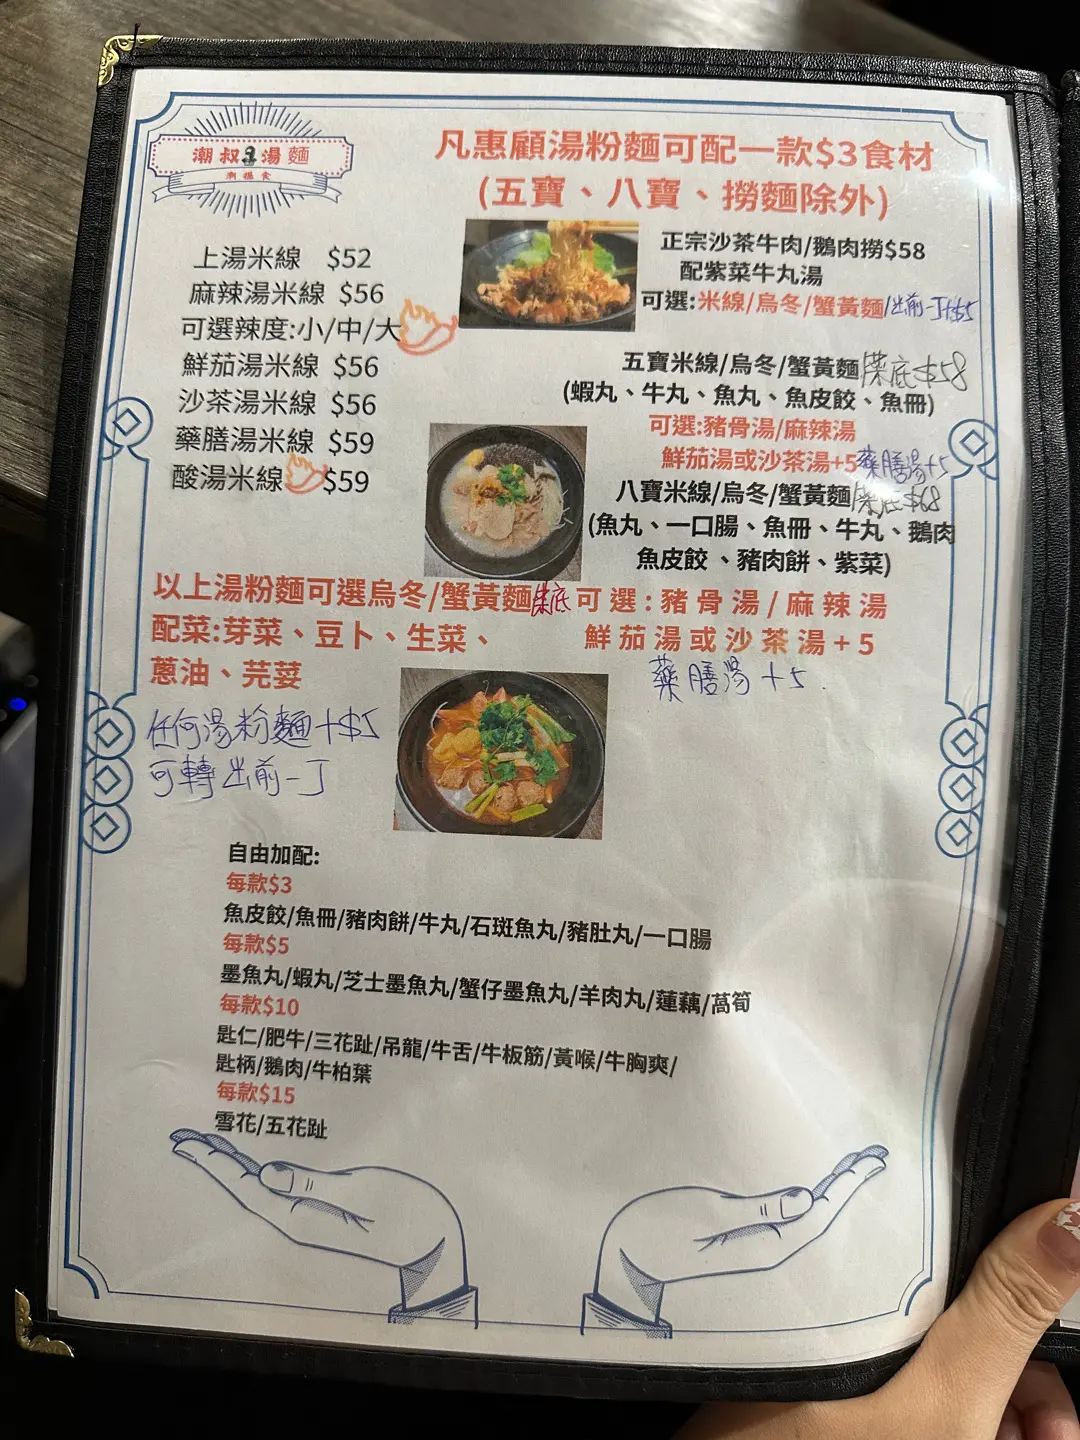 潮叔湯麵
潮攝食
凡惠顧湯粉麵可配一款$3食材
(五寶、八寶、撈麵除外)
上湯米線 $52
麻辣湯米線 $56
可選辣度:小/中/大
鮮茄湯米線 $56
沙茶湯米線 $56
藥膳湯米線 $59
酸湯米線 $59
正宗沙茶牛肉/鵝肉撈$58
配紫菜牛丸湯
可選:米線/烏冬/蟹黃麵/出前一丁+$5
五寶米線/烏冬/蟹黃麵/菜底$58
(蝦丸、牛丸、魚丸、魚皮餃、魚冊)
可選:豬骨湯/麻辣湯
鮮茄湯或沙茶湯+5藥膳湯+5
八寶米線/烏冬/蟹黃麵/菜底$68
(魚丸、一口腸、魚冊、牛丸、鵝肉
魚皮餃、豬肉餅、紫菜)
以上湯粉麵可選烏冬/蟹黃麵/菜底
配菜:芽菜、豆卜、生菜、
蔥油、芫荽
可選:豬骨湯/麻辣湯
鮮茄湯或沙茶湯+5
藥膳湯+5.
任何湯粉麵+$5
可轉出前一丁
自由加配:
每款$3
魚皮餃/魚冊/豬肉餅/牛丸/石斑魚丸/豬肚丸/一口腸
每款$5
墨魚丸/蝦丸/芝士墨魚丸/蟹仔墨魚丸/羊肉丸/蓮藕/萵筍
每款$10
匙仁/肥牛/三花趾/吊龍/牛舌/牛板筋/黃喉/牛胸爽/
匙柄/鵝肉/牛柏葉
每款$15
雪花/五花趾